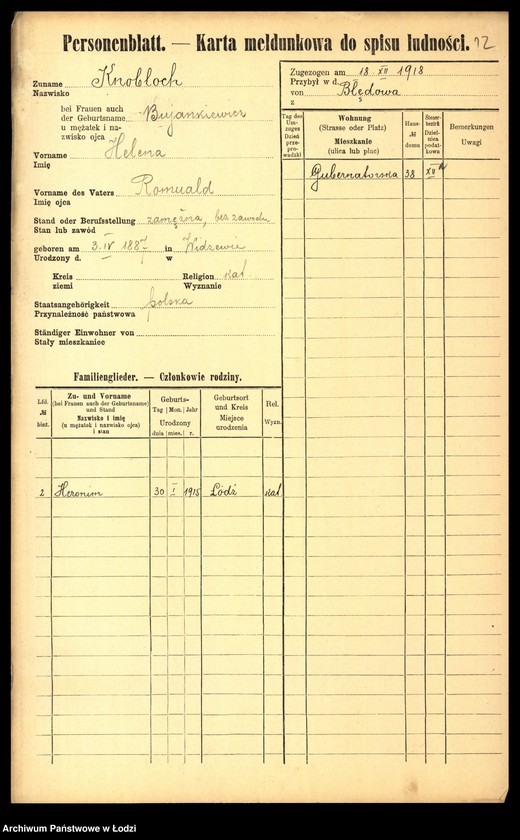 Personenblatt. — Karta meldunkowa do spisu ludności. 12
Zuname Knobloch
Nazwisko
bei Frauen auch
der Geburtsname Bujankiewicz
u mężatek i na-
zwisko ojca
Vorname Helena
Imię
Vorname des Vaters Romuald
Imię ojca
Stand oder Berufsstellung zamężna, bez zawodu
Stan lub zawód
geboren am 3. IV 1887 in Widzewie
Urodzony d. w
Kreis Religion kat.
ziemi Wyznanie
Staatsangehörigkeit polska
Przynależność państwowa
Ständiger Einwohner von
Stały mieszkaniec
Familienglieder. — Członkowie rodziny.
Lfd. № bież.
Zu- und Vorname
(bei Frauen auch der Geburtsname)
und Stand
Nazwisko i imię
(u mężatek i nazwisko ojca)
i stan
Geburts-
Tag Mon. Jahr
Urodzony
dnia mies. r.
Geburtsort
und Kreis
Miejsce
urodzenia
Rel.
Wyzn.
2 Heronim 30 I 1915 Łódź kat
Zugezogen am 18 XII 1918
Przybył w d.
von Błędowa
z
Tag des
Um-
zuges
Dzień
prze-
prowadzki
Wohnung
(Strasse oder Platz)
Mieszkanie
(ulica lub plac)
Haus-
№
domu
Steuer-
bezirk
Dziel-
nica
podat-
kowa
Bemerkungen
Uwagi
Gubernatorska 38 XII
Archiwum Państwowe w Łodzi